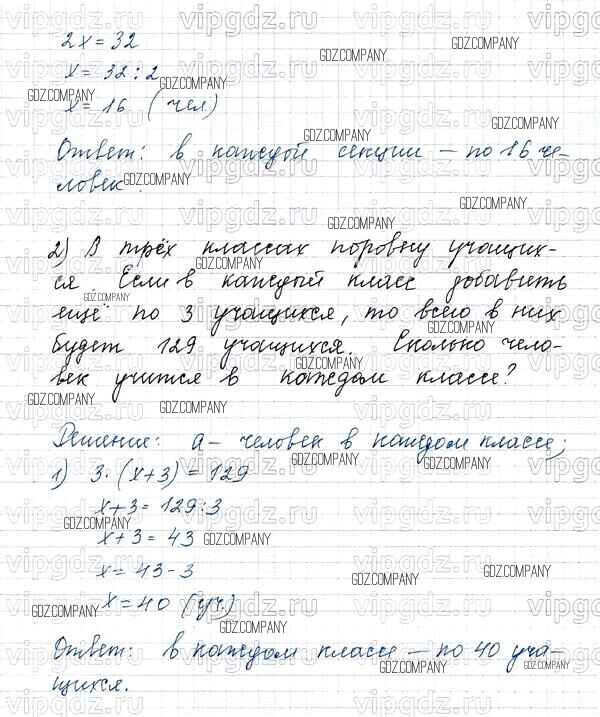 2x = 32
x = 32 : 2
x = 16 (чел)
Ответ: в каждой секции – по 16 че-
ловек.
2) В трёх классах поровну учащих-
ся. Если в каждый класс добавить
ещё по 3 учащихся, то всего в них
будет 129 учащихся. Сколько чело-
век учится в каждом классе?
Решение: a – человек в каждом классе;
1) 3 · (x+3) = 129
x+3 = 129:3
x+3 = 43
x = 43-3
x = 40 (уч.)
Ответ: в каждом классе – по 40 уча-
щихся.